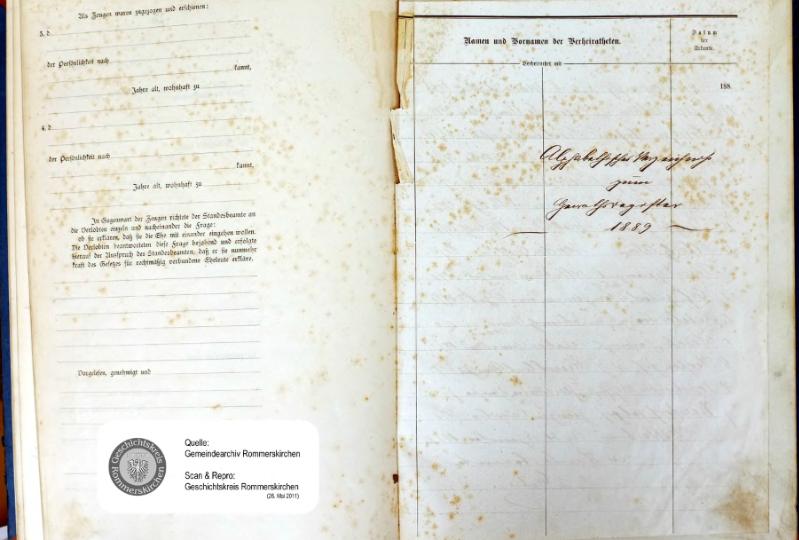 Als Zeugen waren zugezogen und erschienen:
3. d
der Persönlichkeit nach
kannt,
Jahre alt, wohnhaft zu
4. d
der Persönlichkeit nach
kannt,
Jahre alt, wohnhaft zu
In Gegenwart der Zeugen richtete der Standesbeamte an
die Verlobten einzeln und nacheinander die Frage:
ob sie erklären, daß sie die Ehe mit einander eingehen wollen.
Die Verlobten beantworteten diese Frage bejahend und erfolgte
hierauf der Ausspruch des Standesbeamten, daß er sie nunmehr
kraft des Gesetzes für rechtmäßig verbundene Eheleute erkläre.
Vorgelesen, genehmigt und
Geschichtskreis
Rommerskirchen
Quelle:
Gemeindearchiv Rommerskirchen
Scan & Repro:
Geschichtskreis Rommerskirchen
(26. Mai 2011)
Namen und Vornamen der Verheiratheten.
Datum
der
Urkunde.
188
Alphabetisches Verzeichniß
zum
Heirathsregister
1889